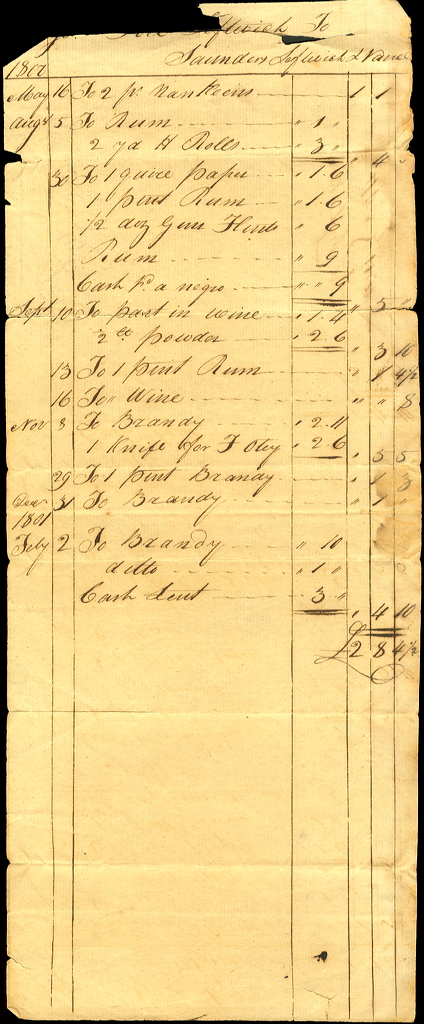 Leftwich To
Saunders Leftwich & Vance
1800
May 16 To 2 ps Nankeens 1 1
Augt 5 To Rum " 1 "
2 yd H Rolls " 3 " " 4 "
30 To 1 quire paper " 1.6
1 pint Rum " 1.6
1/2 doz Gun Flints " 6
Rum " 9
Cash pd a negro " " 9 " 5 "
Sept 10 To part in wine " 1.4
1/2 lb powder " 2.6 " 3 10
13 To 1 pint Rum " 1 4 1/2
16 To " Wine " " 8
Nov 8 To Brandy " 2.11
1 Knife for F Otey " 2 6 " 5 5
29 To 1 pint Brandy " 1 3
Decr 31 To Brandy " 1 "
1801
Feby 2 To Brandy " 10
ditto " 1 "
Cash Lent 3 " " 4 10
£2 8 4 1/2